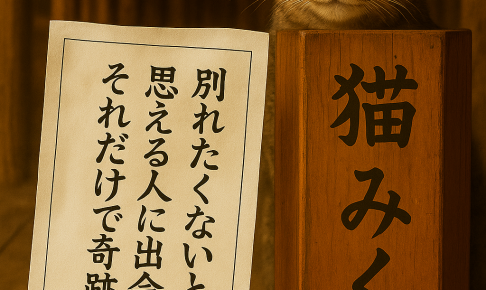 猫みく
別れたくないと
思える人に出会
それだけで奇跡